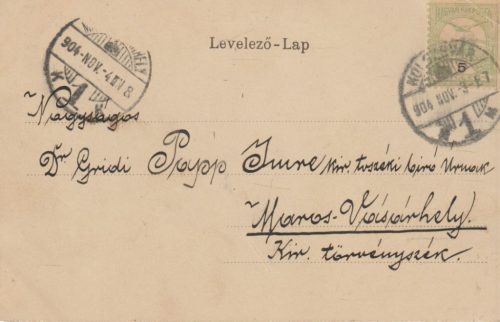 Levelező-Lap
904 NOV. 4
904 NOV. 3
5
Nagyságos
Dr Gridi Papp Imre kir. tvszéki biró Urnak
Maros-Vásárhely.
Kir. törvényszék.